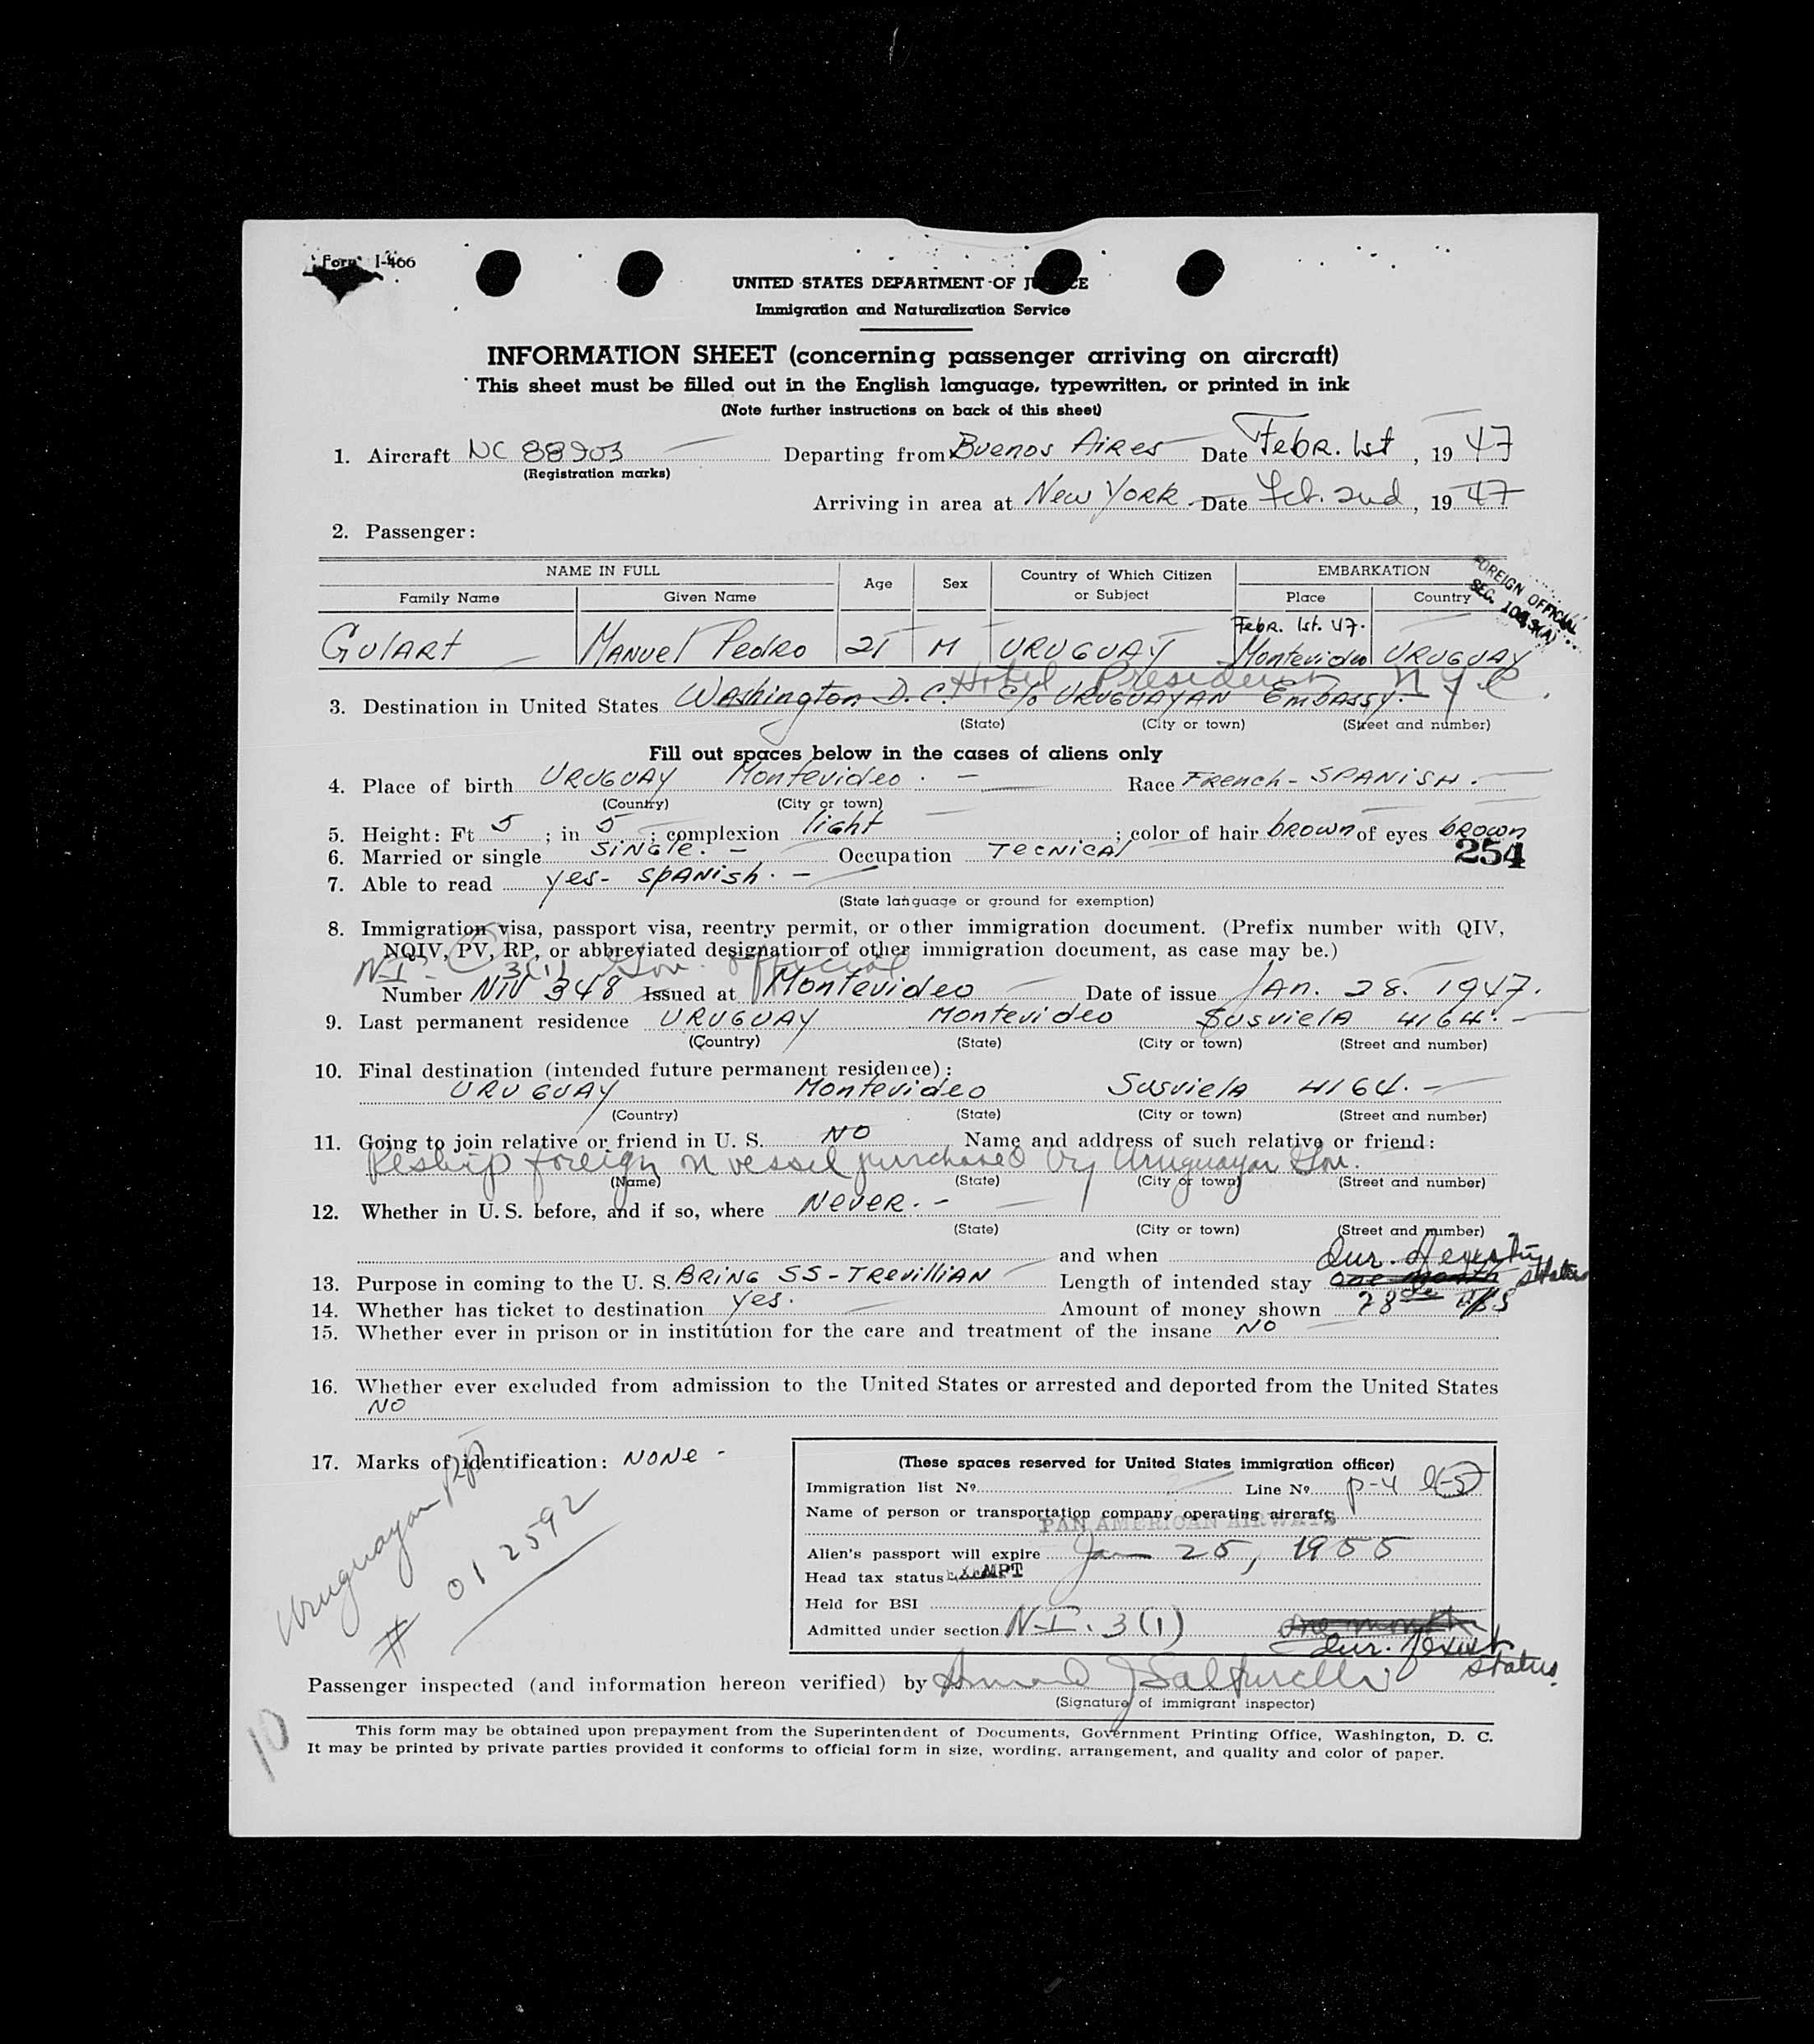 Form I-466
UNITED STATES DEPARTMENT OF J CE
Immigration and Naturalization Service
INFORMATION SHEET (concerning passenger arriving on aircraft)
This sheet must be filled out in the English language, typewritten, or printed in ink
(Note further instructions on back of this sheet)
1. Aircraft NC 88903 Departing from Buenos Aires Date Febr. 1st, 19 47
(Registration marks)
Arriving in area at New York. Date Feb. 2nd, 19 47
2. Passenger:
NAME IN FULL Age Sex Country of Which Citizen or Subject EMBARKATION
Family Name Given Name Place Country
FOREIGN OFFICIAL
SEC.
Febr. 1st. 47.
Gulart Manuel Pedro 21 M URUGUAY Montevideo URUGUAY
Hotel President N Y C.
3. Destination in United States Washington D.C. c/o URUGUAYAN Embassy.
(State) (City or town) (Street and number)
Fill out spaces below in the cases of aliens only
4. Place of birth URUGUAY Montevideo. - Race French - SPANISH.
(Country) (City or town)
5. Height: Ft 5; in 5; complexion light; color of hair brown of eyes brown
6. Married or single Single. - Occupation Tecnical
254
7. Able to read yes - spanish. -
(State language or ground for exemption)
8. Immigration visa, passport visa, reentry permit, or other immigration document. (Prefix number with QIV,
NQIV, PV, RP, or abbreviated designation of other immigration document, as case may be.)
N.I. 3(1) Gov. official
Number NIV 348 Issued at Montevideo Date of issue Jan. 28. 1947.
9. Last permanent residence URUGUAY Montevideo Susviela 4164. -
(Country) (State) (City or town) (Street and number)
10. Final destination (intended future permanent residence):
URUGUAY Montevideo Susviela 4164. -
(Country) (State) (City or town) (Street and number)
11. Going to join relative or friend in U. S. NO Name and address of such relative or friend:
Reship foreign on vessel purchased by Uruguayan Gov.
(Name) (State) (City or town) (Street and number)
12. Whether in U. S. before, and if so, where Never. -
(State) (City or town) (Street and number)
and when
Dur. of
status
13. Purpose in coming to the U. S. BRING SS - TREVILLIAN Length of intended stay one month
14. Whether has ticket to destination yes. Amount of money shown 78
15. Whether ever in prison or in institution for the care and treatment of the insane NO
16. Whether ever excluded from admission to the United States or arrested and deported from the United States
NO
17. Marks of identification: NONE -
Uruguayan PP
# 012592
(These spaces reserved for United States immigration officer)
Immigration list No. Line No. P-4
Name of person or transportation company operating aircraft
PAN AMERICAN AIRWAYS
Alien's passport will expire Jan 25, 1955
Head tax status EXEMPT
Held for BSI
Admitted under section N.I. 3(1) one month
Dur. of
status.
Passenger inspected (and information hereon verified) by
(Signature of immigrant inspector)
10
This form may be obtained upon prepayment from the Superintendent of Documents, Government Printing Office, Washington, D. C.
It may be printed by private parties provided it conforms to official form in size, wording, arrangement, and quality and color of paper.